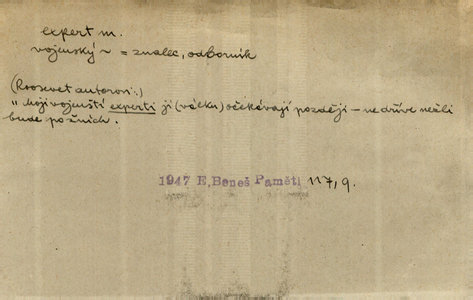 expert m.
vojenský ~ = znalec, odborník
(Roosvet autorovi:)
" Moji vojenští experti ji (válku) očekávají později – ne dříve nežli
bude po žních.
1947 E. Beneš Paměti 117, 9.